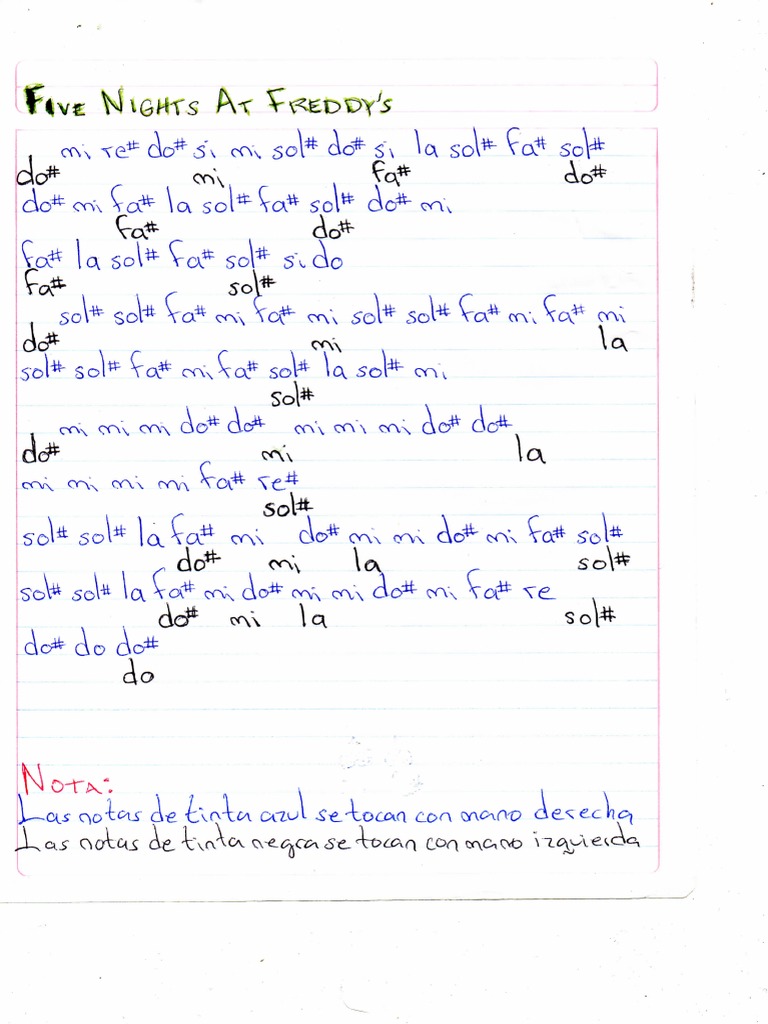 FIVE NIGHTS AT FREDDY'S
mi re# do# si mi sol# do# si la sol# fa# sol#
do# mi fa# do#
do# mi fa# la sol# fa# sol# do# mi
fa# do#
fa# la sol# fa# sol# si do
fa# sol#
sol# sol# fa# mi fa# mi sol# sol# fa# mi fa# mi
do# mi la
sol# sol# fa# mi fa# sol# la sol# mi
sol#
mi mi mi do# do# mi mi mi do# do#
do# mi la
mi mi mi mi fa# re#
sol#
sol# sol# la fa# mi do# mi mi do# mi fa# sol#
do# mi la sol#
sol# sol# la fa# mi do# mi mi do# mi fa# re
do# mi la sol#
do# do do#
do
NOTA:
Las notas de tinta azul se tocan con mano derecha
Las notas de tinta negra se tocan con mano izquierda